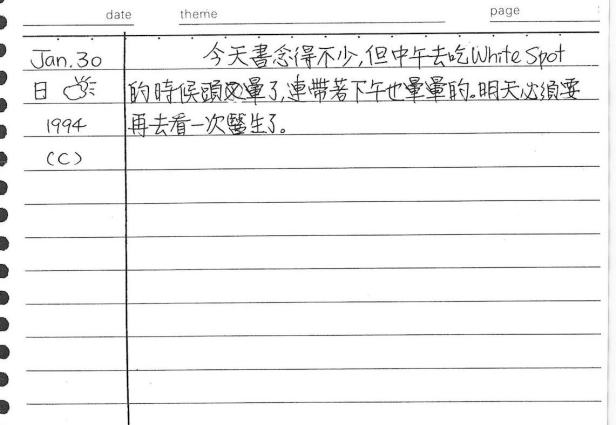 date theme page
Jan. 30 今天書念得不少,但中午去吃White Spot
日 的時候頭又暈了,連帶著下午也暈暈的。明天必須要
1994 再去看一次醫生了。
(C)